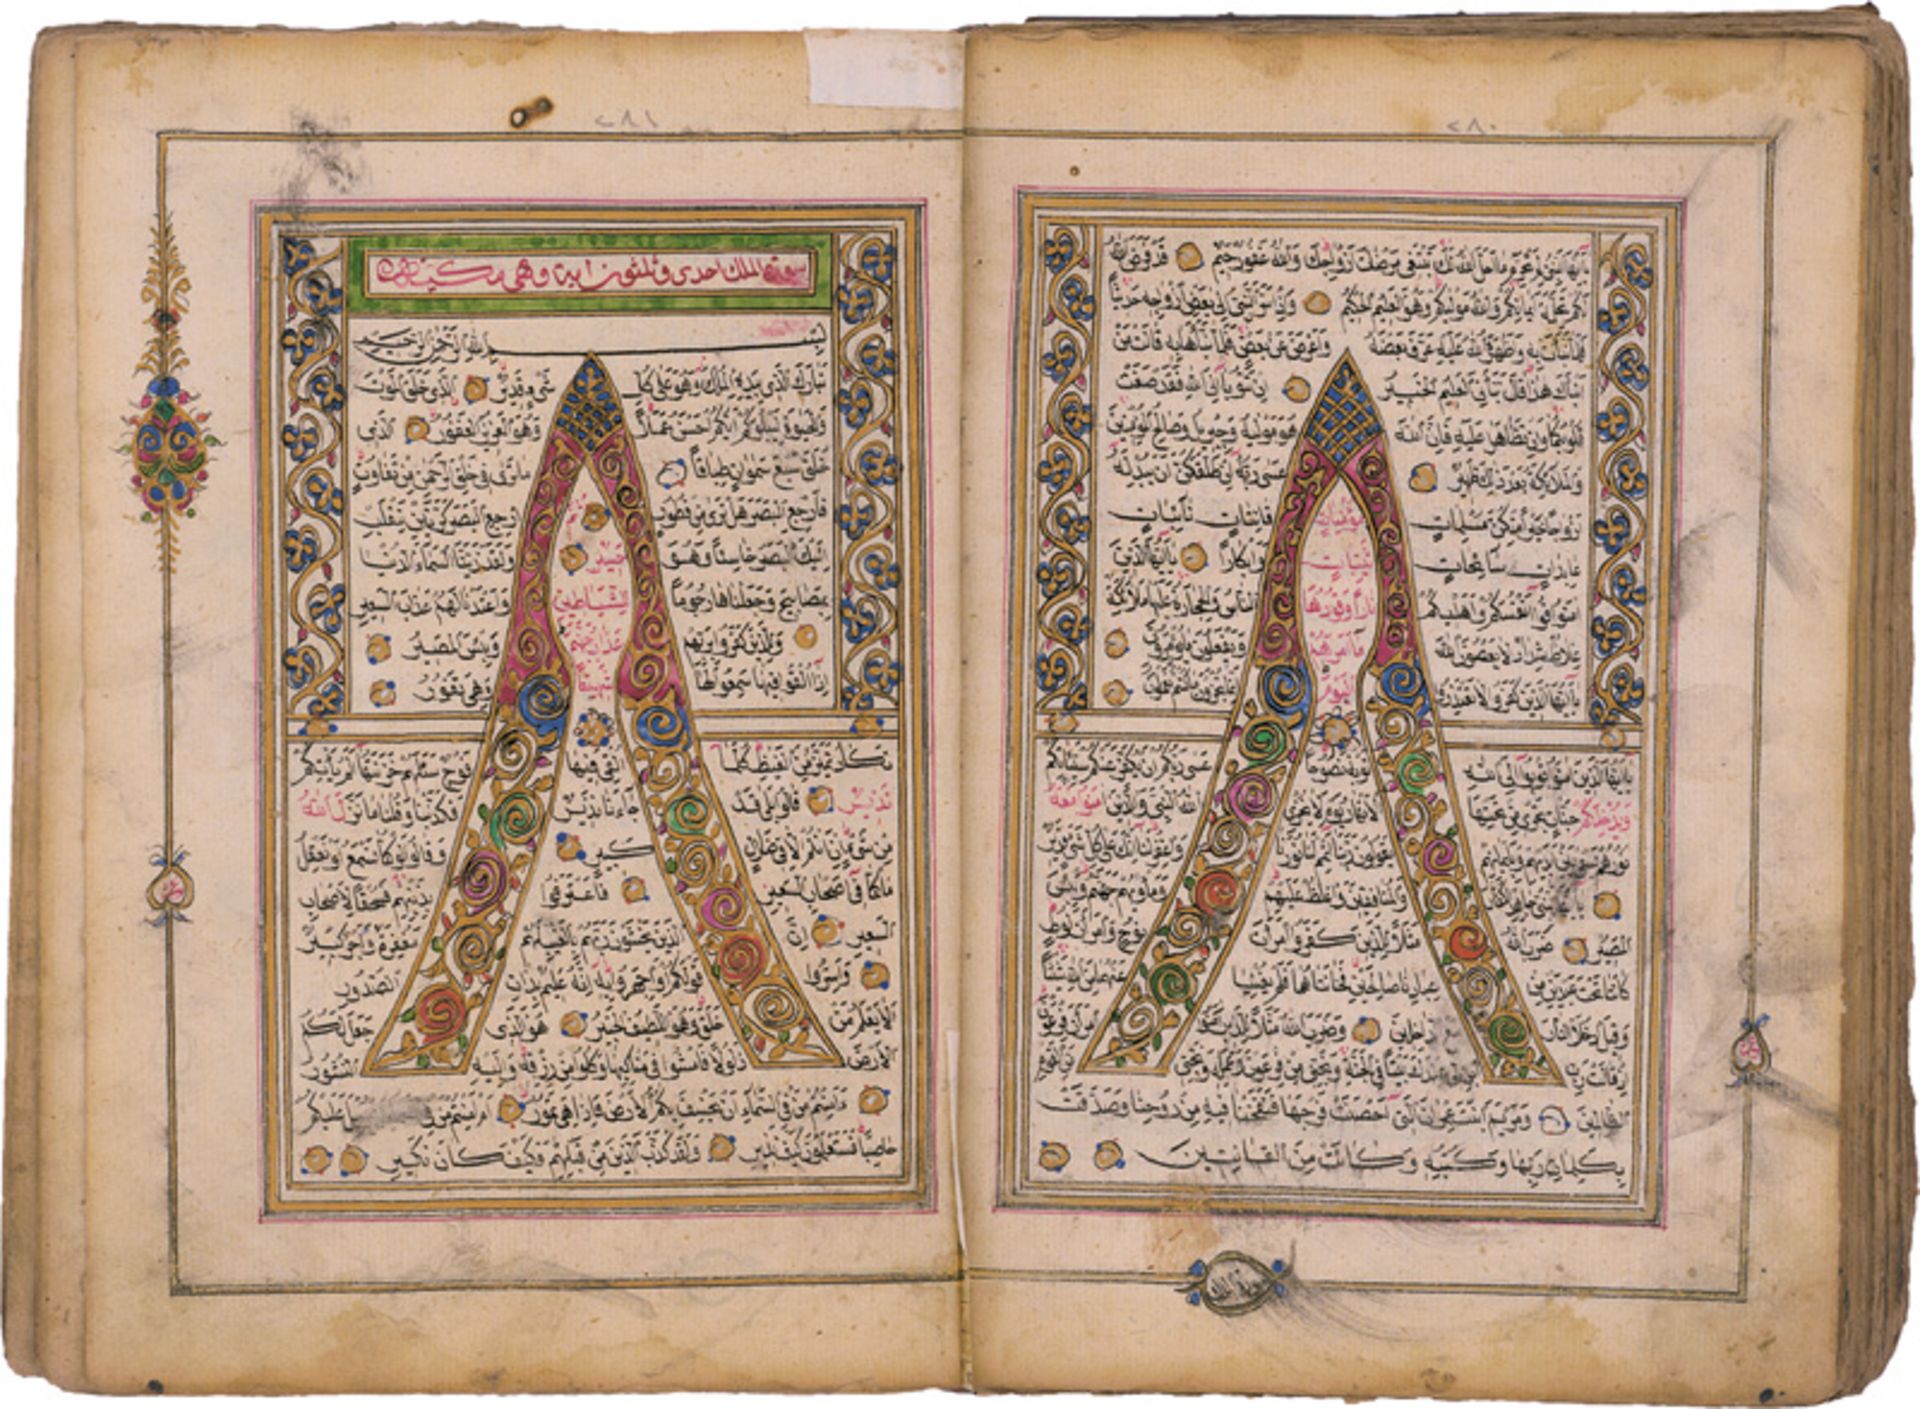 يا أيها النبي لم تحرم ما أحل الله لك تبتغي مرضات أزواجك والله غفور رحيم قد فرض الله
لكم تحلة أيمانكم والله موليكم وهو العليم الحكيم وإذ أسر النبي إلى بعض أزواجه حديثا
فلما نبأت به وأظهره الله عليه عرف بعضه وأعرض عن بعض فلما نبأها به قالت من
أنبأك هذا قال نبأني العليم الخبير إن تتوبا إلى الله فقد صغت
قلوبكما وإن تظاهرا عليه فإن الله هو موليه وجبريل وصالح المؤمنين
والملائكة بعد ذلك ظهير عسى ربه إن طلقكن أن يبدله
أزواجا خيرا منكن مسلمات مؤمنات قانتات تائبات
عابدات سائحات ثيبات وأبكارا يا أيها الذين
آمنوا قوا أنفسكم وأهليكم نارا وقودها الناس والحجارة عليها ملائكة
غلاظ شداد لا يعصون الله ما أمرهم ويفعلون ما يؤمرون
يا أيها الذين كفروا لا تعتذروا اليوم إنما تجزون ما كنتم تعملون
يا أيها الذين آمنوا توبوا إلى الله توبة نصوحا عسى ربكم أن يكفر عنكم سيئاتكم
ويدخلكم جنات تجري من تحتها الأنهار يوم لا يخزي الله النبي والذين آمنوا معه
نورهم يسعى بين أيديهم وبأيمانهم يقولون ربنا أتمم لنا نورنا واغفر لنا إنك على كل شيء قدير
يا أيها النبي جاهد الكفار والمنافقين واغلظ عليهم ومأويهم جهنم وبئس
المصير ضرب الله مثلا للذين كفروا امرأت نوح وامرأت لوط
كانتا تحت عبدين من عبادنا صالحين فخانتاهما فلم يغنيا عنهما من الله شيئا
وقيل ادخلا النار مع الداخلين وضرب الله مثلا للذين آمنوا امرأت فرعون
إذ قالت رب ابن لي عندك بيتا في الجنة ونجني من فرعون وعمله ونجني من القوم
الظالمين ومريم ابنت عمران التي أحصنت فرجها فنفخنا فيه من روحنا وصدقت
بكلمات ربها وكتبه وكانت من القانتين
٢٨٠
٢٨١
سورة الملك احدى وثلثون اية وهي مكية
بسم الله الرحمن الرحيم
تبارك الذي بيده الملك وهو على كل شيء قدير الذي خلق الموت
والحيوة ليبلوكم أيكم أحسن عملا وهو العزيز الغفور الذي
خلق سبع سموات طباقا ما ترى في خلق الرحمن من تفاوت
فارجع البصر هل ترى من فطور ثم ارجع البصر كرتين ينقلب
إليك البصر خاسئا وهو حسير ولقد زينا السماء الدنيا
بمصابيح وجعلناها رجوما للشياطين وأعتدنا لهم عذاب السعير
وللذين كفروا بربهم عذاب جهنم وبئس المصير
إذا ألقوا فيها سمعوا لها شهيقا وهي تفور
تكاد تميز من الغيظ كلما ألقي فيها فوج سألهم خزنتها ألم يأتكم
نذير قالوا بلى قد جاءنا نذير فكذبنا وقلنا ما نزل الله
من شيء إن أنتم إلا في ضلال كبير وقالوا لو كنا نسمع أو نعقل
ما كنا في أصحاب السعير فاعترفوا بذنبهم فسحقا لأصحاب
السعير إن الذين يخشون ربهم بالغيب لهم مغفرة وأجر كبير
وأسروا قولكم أو اجهروا به إنه عليم بذات الصدور
ألا يعلم من خلق وهو اللطيف الخبير هو الذي جعل لكم
الأرض ذلولا فامشوا في مناكبها وكلوا من رزقه وإليه النشور
ءأمنتم من في السماء أن يخسف بكم الأرض فإذا هي تمور أم أمنتم من في السماء أن يرسل عليكم
حاصبا فستعلمون كيف نذير ولقد كذب الذين من قبلهم فكيف كان نكير